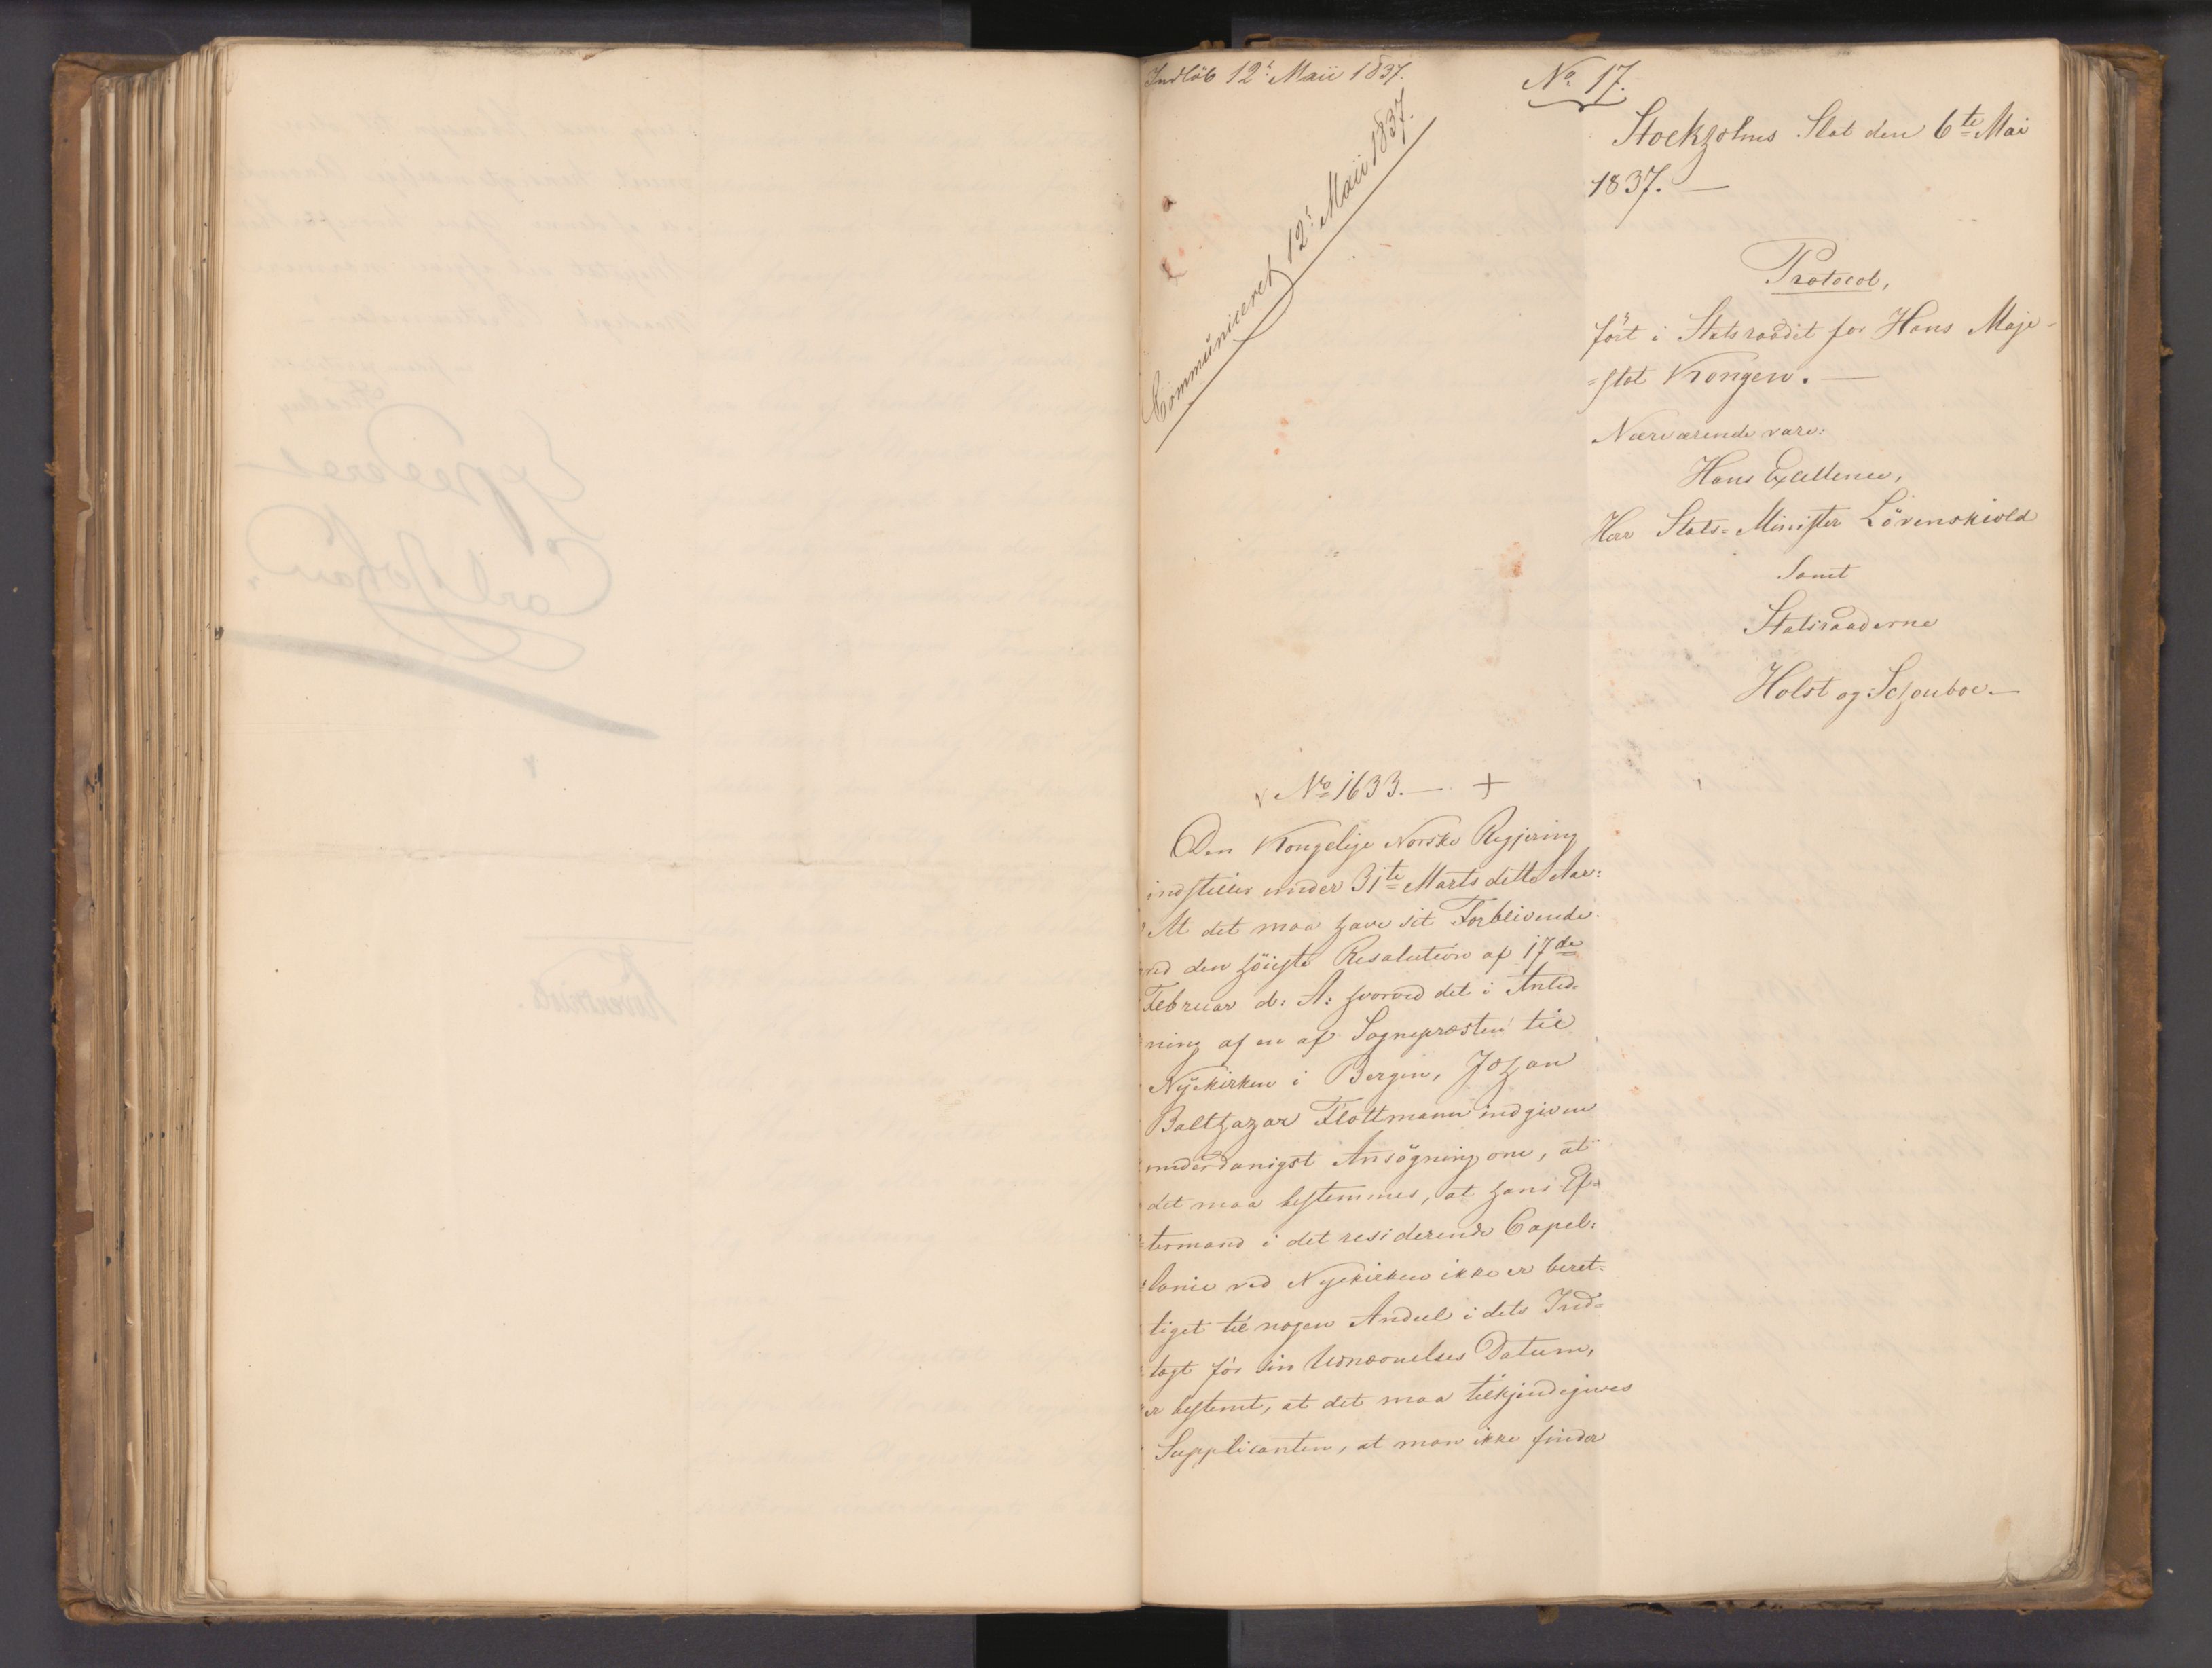 Indløb 12t Maii 1837.
Communiceret 12t Maii 1837.
No. 17.
Stockholms Slot den 6te Mai
1837. —
Protocol,
ført i Statsraadet for Hans Maje-
=stæt Kongen. —
Nærværende vare:
Hans Excellence,
Herr Stats-Minister Løvenskiold
samt
Statsraaderne
Holst og Schouboe. —
No 1633. — +
Den Kongelige Norske Regjering
indstiller under 31te Marts dette Aar:
At det maa have sit Forblivende
ved den høieste Resolution af 17de
Februar d: A: hvorved det i Anled-
ning af en af Sognepræsten til
Nykirken i Bergen, Johan
Balthazar Flottmann indgiven
underdanigst Ansøgning om, at
det maa bestemmes, at hans Ef-
termand i det residerende Capel-
lanie ved Nykirken ikke er beret-
tiget til nogen Andeel i dets Ind-
tægt før sin Udnævnelses Datum,
er bestemt, at det maa tilkjendegives
Supplicanten, at man ikke finder